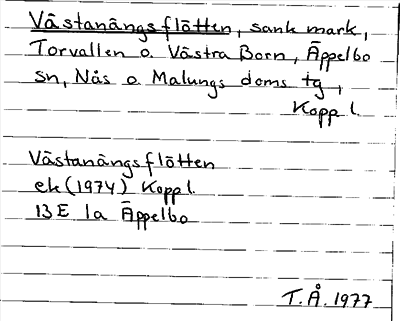 Västanängsflötten, sank mark,
Torvallen o. Västra Born, Äppelbo
sn, Nås o. Malungs doms tg,
Kopp l.
Västanängsflötten
ek (1974) Kopp l.
13 E 1a Äppelbo
T.Å. 1977